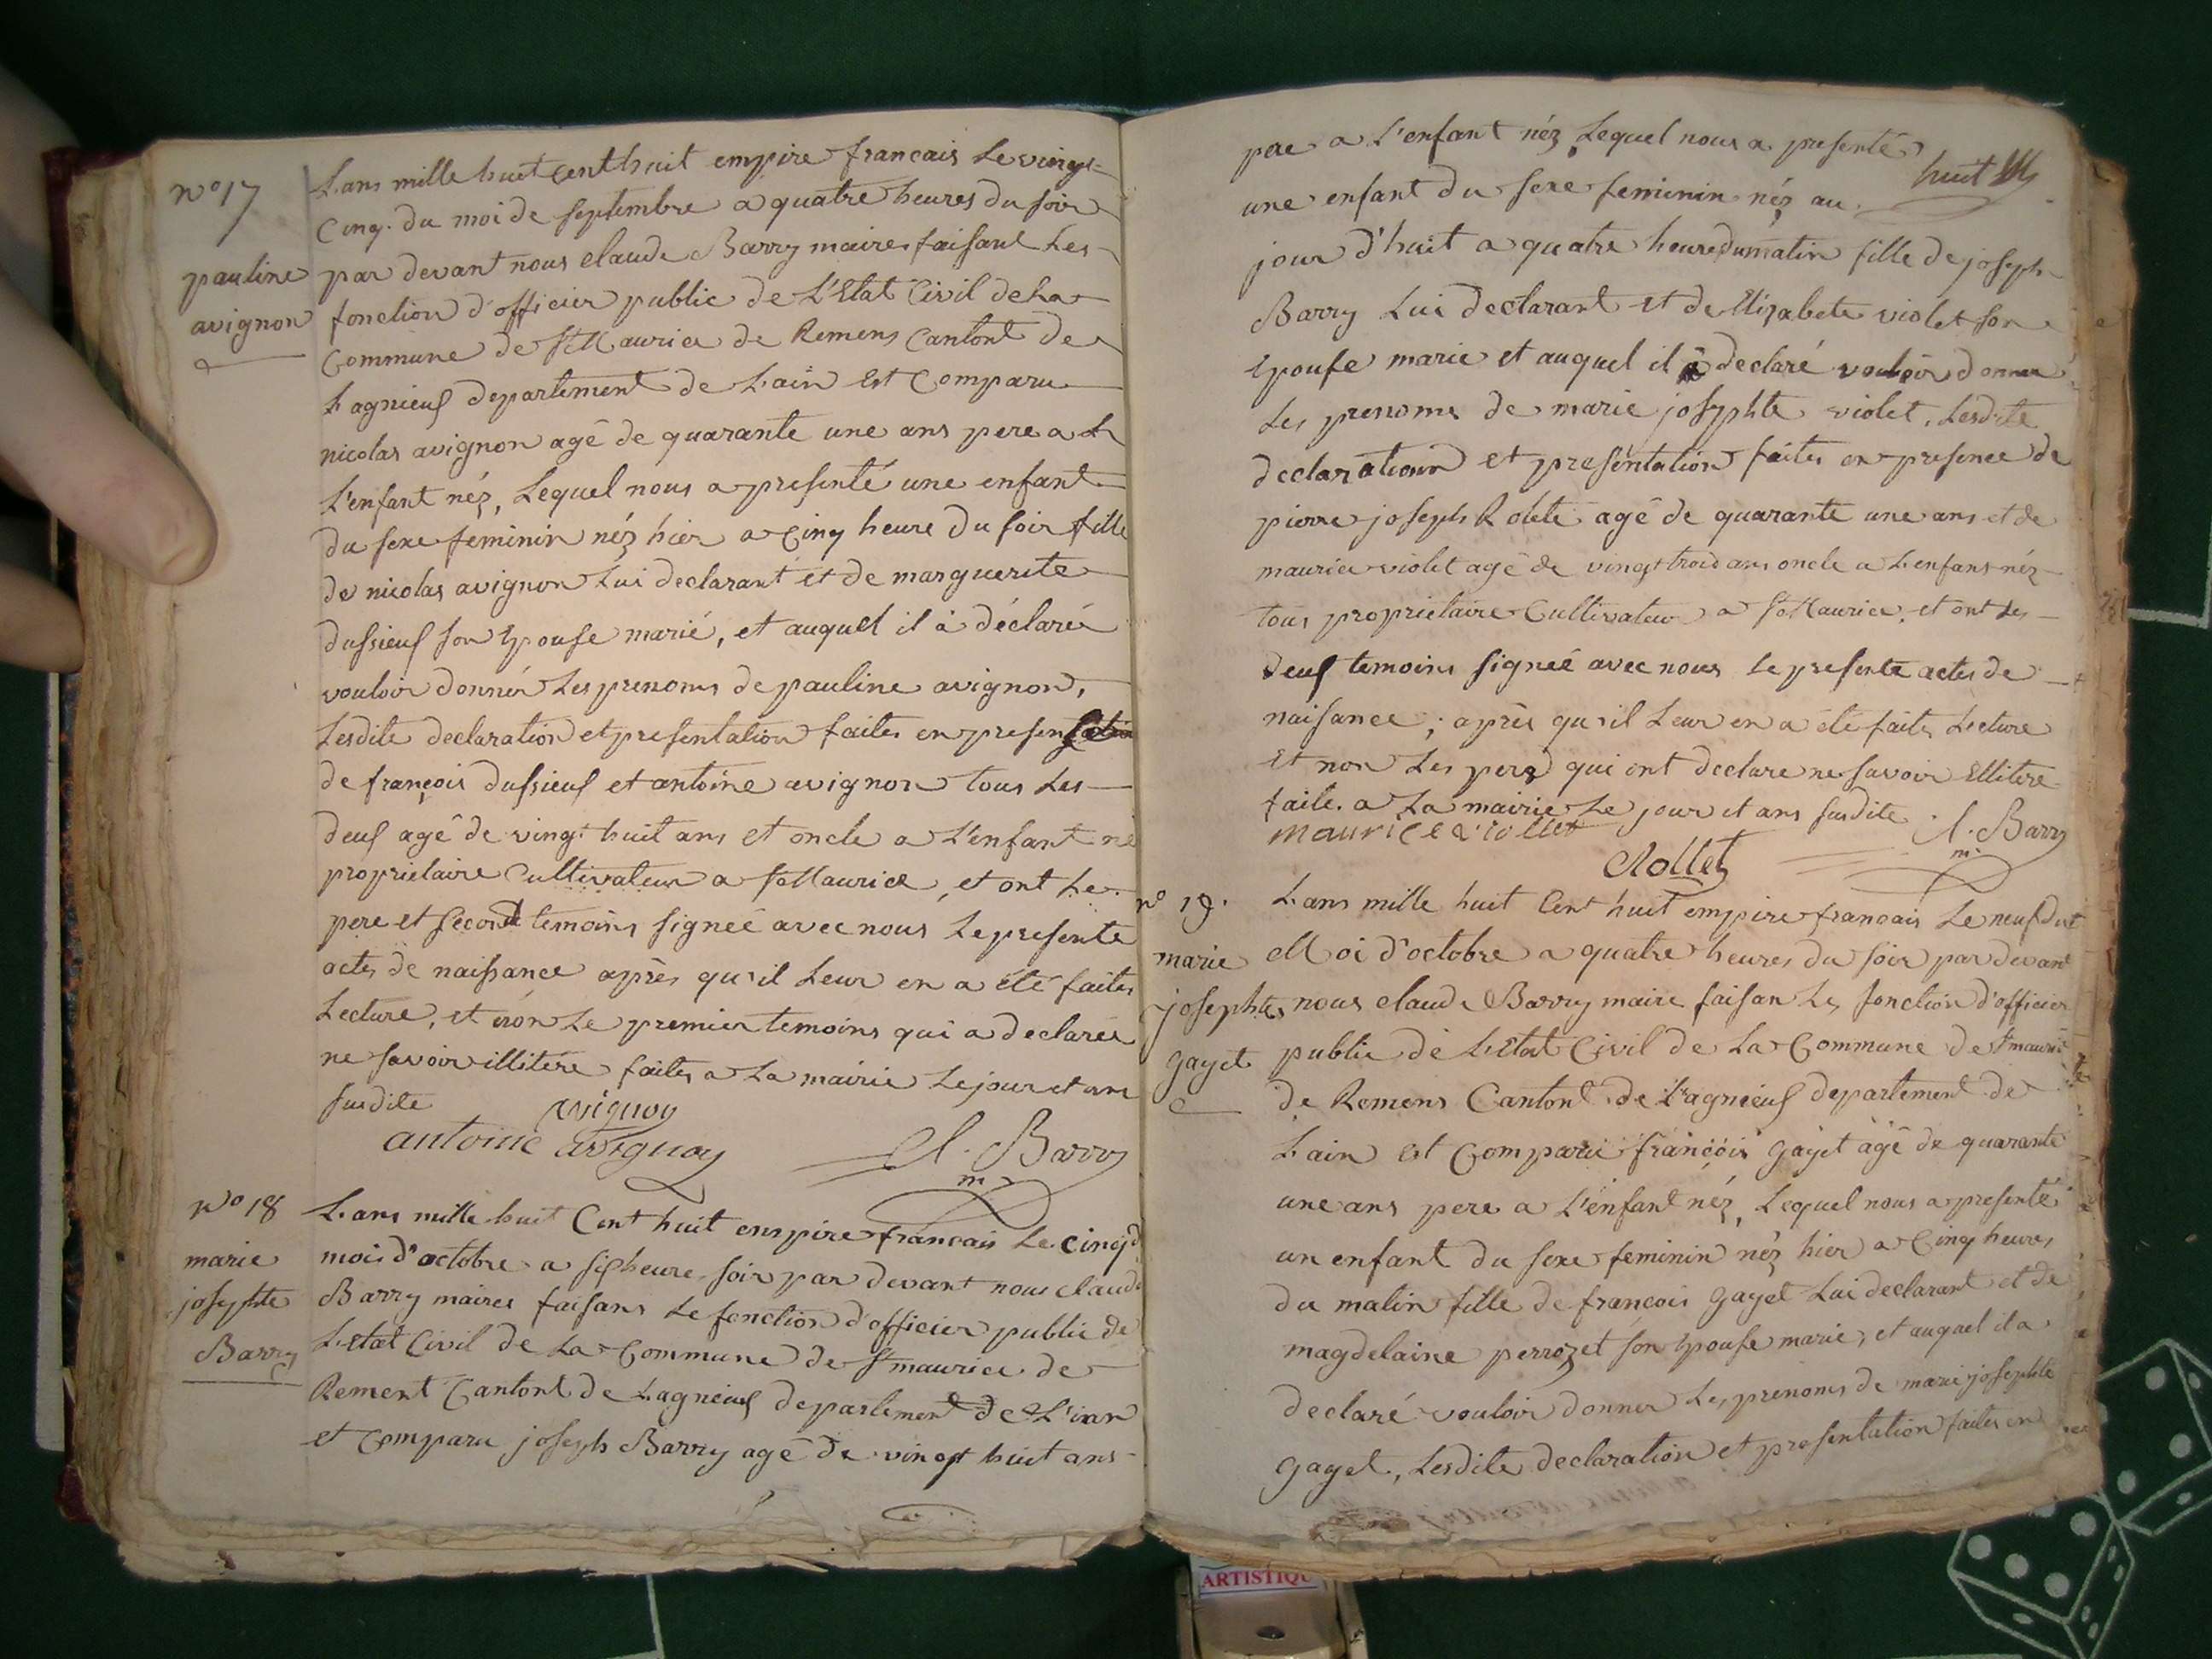 n° 17
pauline
avignon
L'ans mille huit cent huit empire francais Le vingt=
Cinq. du moi de septembre a quatre heures du soir
par devant nous claude Barry maires faisant Les
fonction d'officier public de L'Etat Civil de La
Commune de St Maurice de Remens Cantont de
Lagnieus departement de L'ain Est Comparu
nicolas avignon agé de quarante une ans pere a L
L'enfant néz, Lequel nous a presenté une enfant
du sexe feminin néz hier a Cinq heure du soir fille
de nicolas avignon Lui declarant et de marguerite
dussieus son Epouse marié, et auquel il à déclaréé
vouloir donnér Les prenoms de pauline avignon,
Lesdite declaration et presentation faites en presen
de françois dussieus et antoine avignon tous Les
deus agé de vingt huit ans et oncle a L'enfant né
proprietaire Cultivateur a St Maurice, et ont Le
pere et second temoins signéé avec nous Le presente
actes de naissance après qu'il Leur en a été faites
Lecture, et non Le premier temoins qui a declaréé
ne savoir illitére faites a La mairie Le jour et ans
susdite
avignon
antoine avignon
Cl. Barry
m.
n° 18
marie
josephte
Barry
L'ans mille huit Cent huit empire francais Le cinq d
mois d'octobre a six heure soir par devant nous claude
Barry maires faisans Le fonction d'officier public de
L'Etat Civil de La Commune de St maurice de
Rement Cantont de Lagnieus departement de L'ian
et Comparu joseph Barry agé de vingt huit ans
pere a L'enfant néz Lequel nous a presenté
huit
une enfant du sexe feminin néz au
jour d'huit a quatre heure du matin fille de joseph
Barry Lui declarant et de Elizabete violet son
Epouse marie et auquel il à declaré vouloir donner
Les prenoms de marie josephte violet, Lesdite
declaration et presentation faites en presence de
pierre joseph Rolete agé de quarante une ans et de
maurice violet agé de vingt trois ans oncle a L'enfans néz
tous proprietaire Cultivateur a St Maurice, et ont Les
deus temoins signéé avec nous Le presente actes de
naisance; après qu'il Leur en a été faites Lecture
Et non Les pere qui ont declare ne savoir Ellitere
faite. a La mairie Le jour et ans susdite
maurice viollet
Cl. Barry
m.
Rollet
n° 19.
marie
josephte
gayet
L'ans mille huit Cent huit empire francais Le neuf dut
Moi d'octobre a quatre heures du soir par devant
nous claude Barry maire faisan Les fonction d'officier
public de L'Etat Civil de La Commune de St mauric
de Remens Cantont de Lagnieus departement de
L'ain Est Comparu françois gayet agé de quarante
une ans pere a L'enfant néz, Lequel nous a presenté
un enfant du sexe feminin néz hier a Cinq heures
du matin fille de francois gayet Lui declarant et de
magdelaine perrozet son Epouse marie, et auquel il a
declaré vouloir donner Les prenoms de marie josephte
gayet, Lesdite declaration et presentation faites en
ARTISTIQU